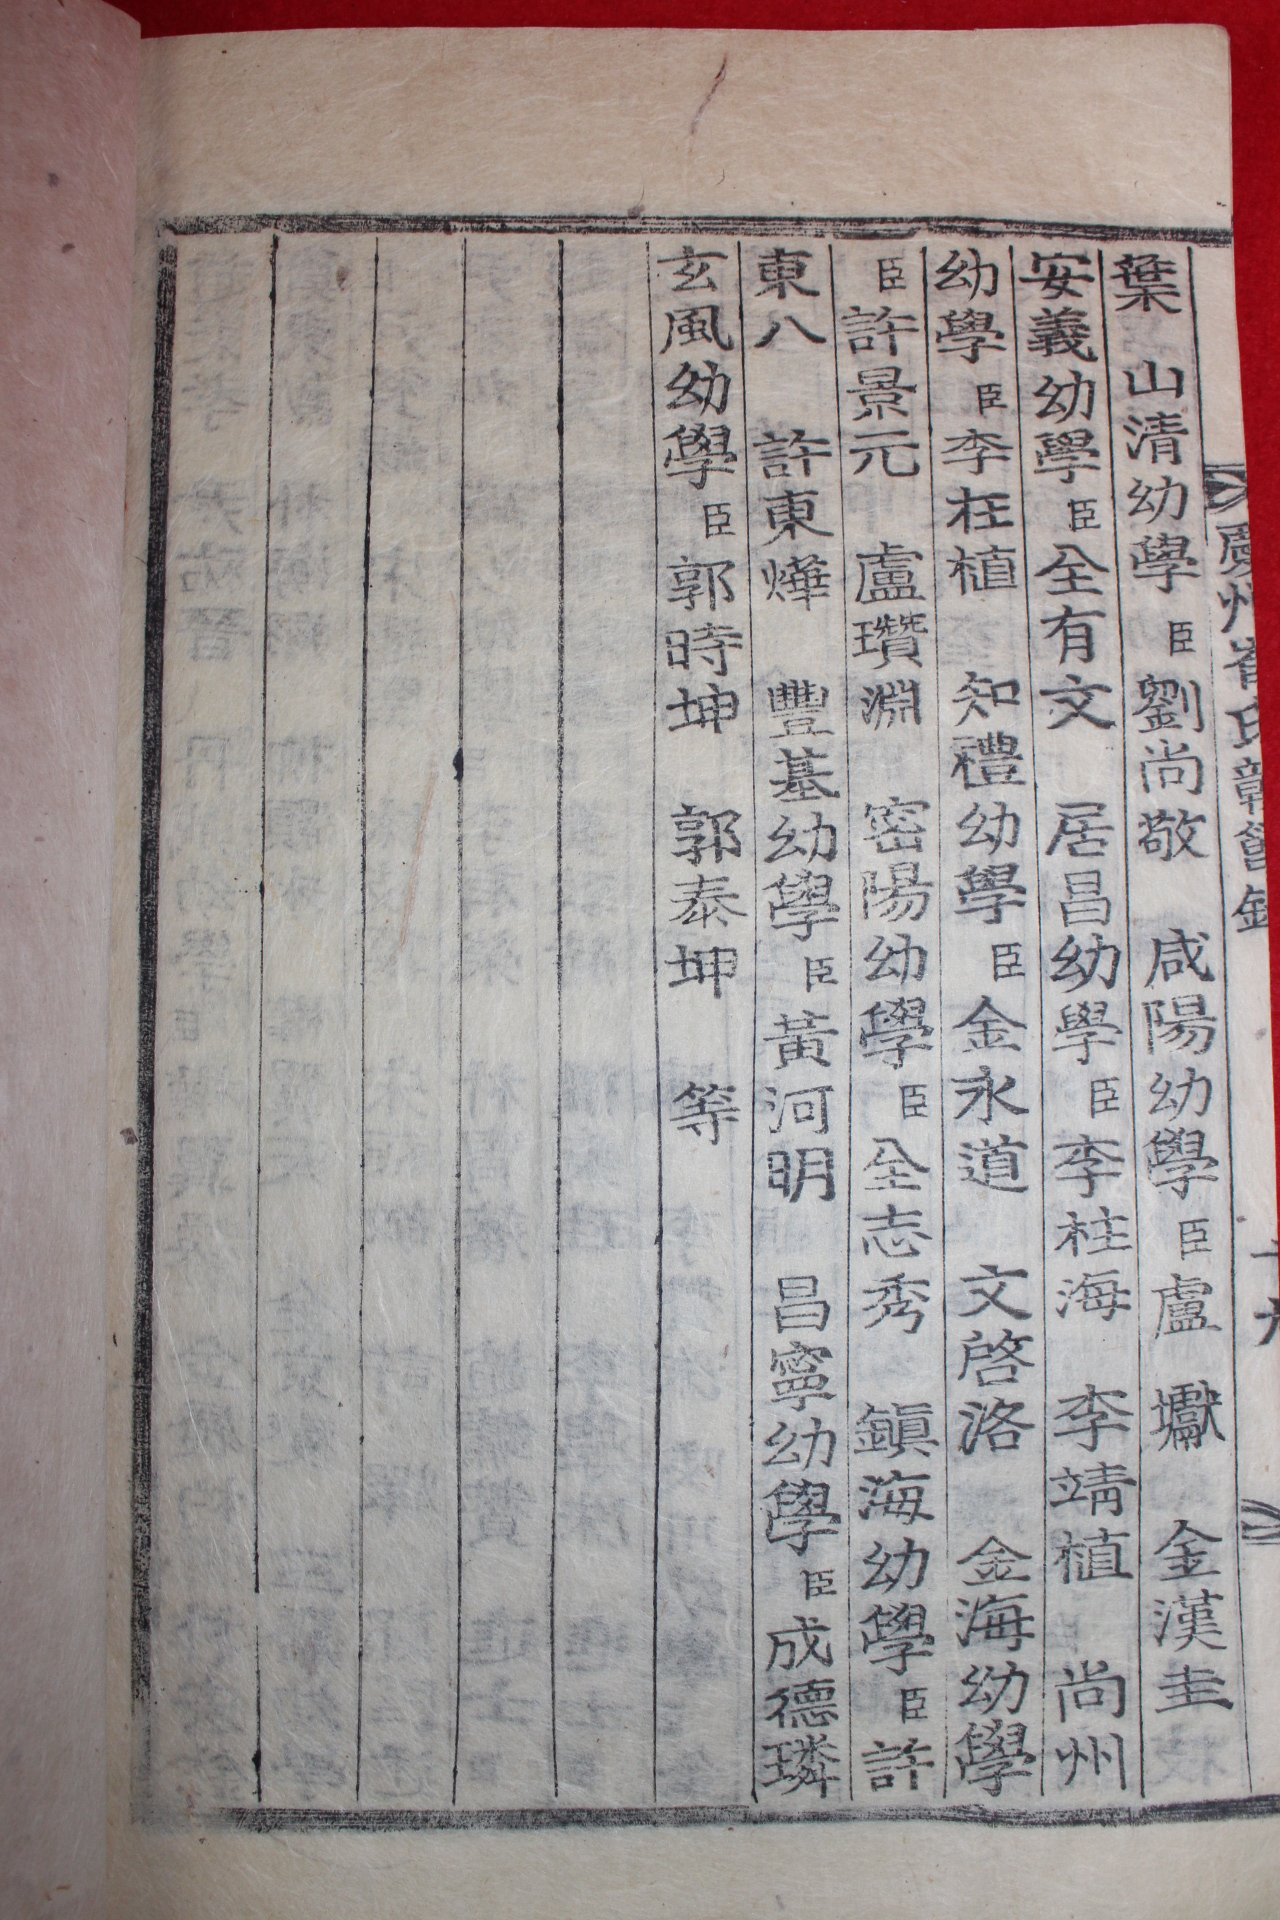 慶州崔氏韓曾錄
葉 山清幼學臣劉尚敬 咸陽幼學臣盧 金漢圭
安義幼學臣全有文 居昌幼學臣李柱海 李靖植 尚州
幼學臣李枉植 知禮幼學臣金永道 文啓洛 金海幼學
臣許景元 盧瓚淵 密陽幼學臣全志秀 鎭海幼學臣許
東八 許東燁 豐基幼學臣黃河明 昌寧幼學臣成德璘
玄風幼學臣郭時坤 郭泰坤 等